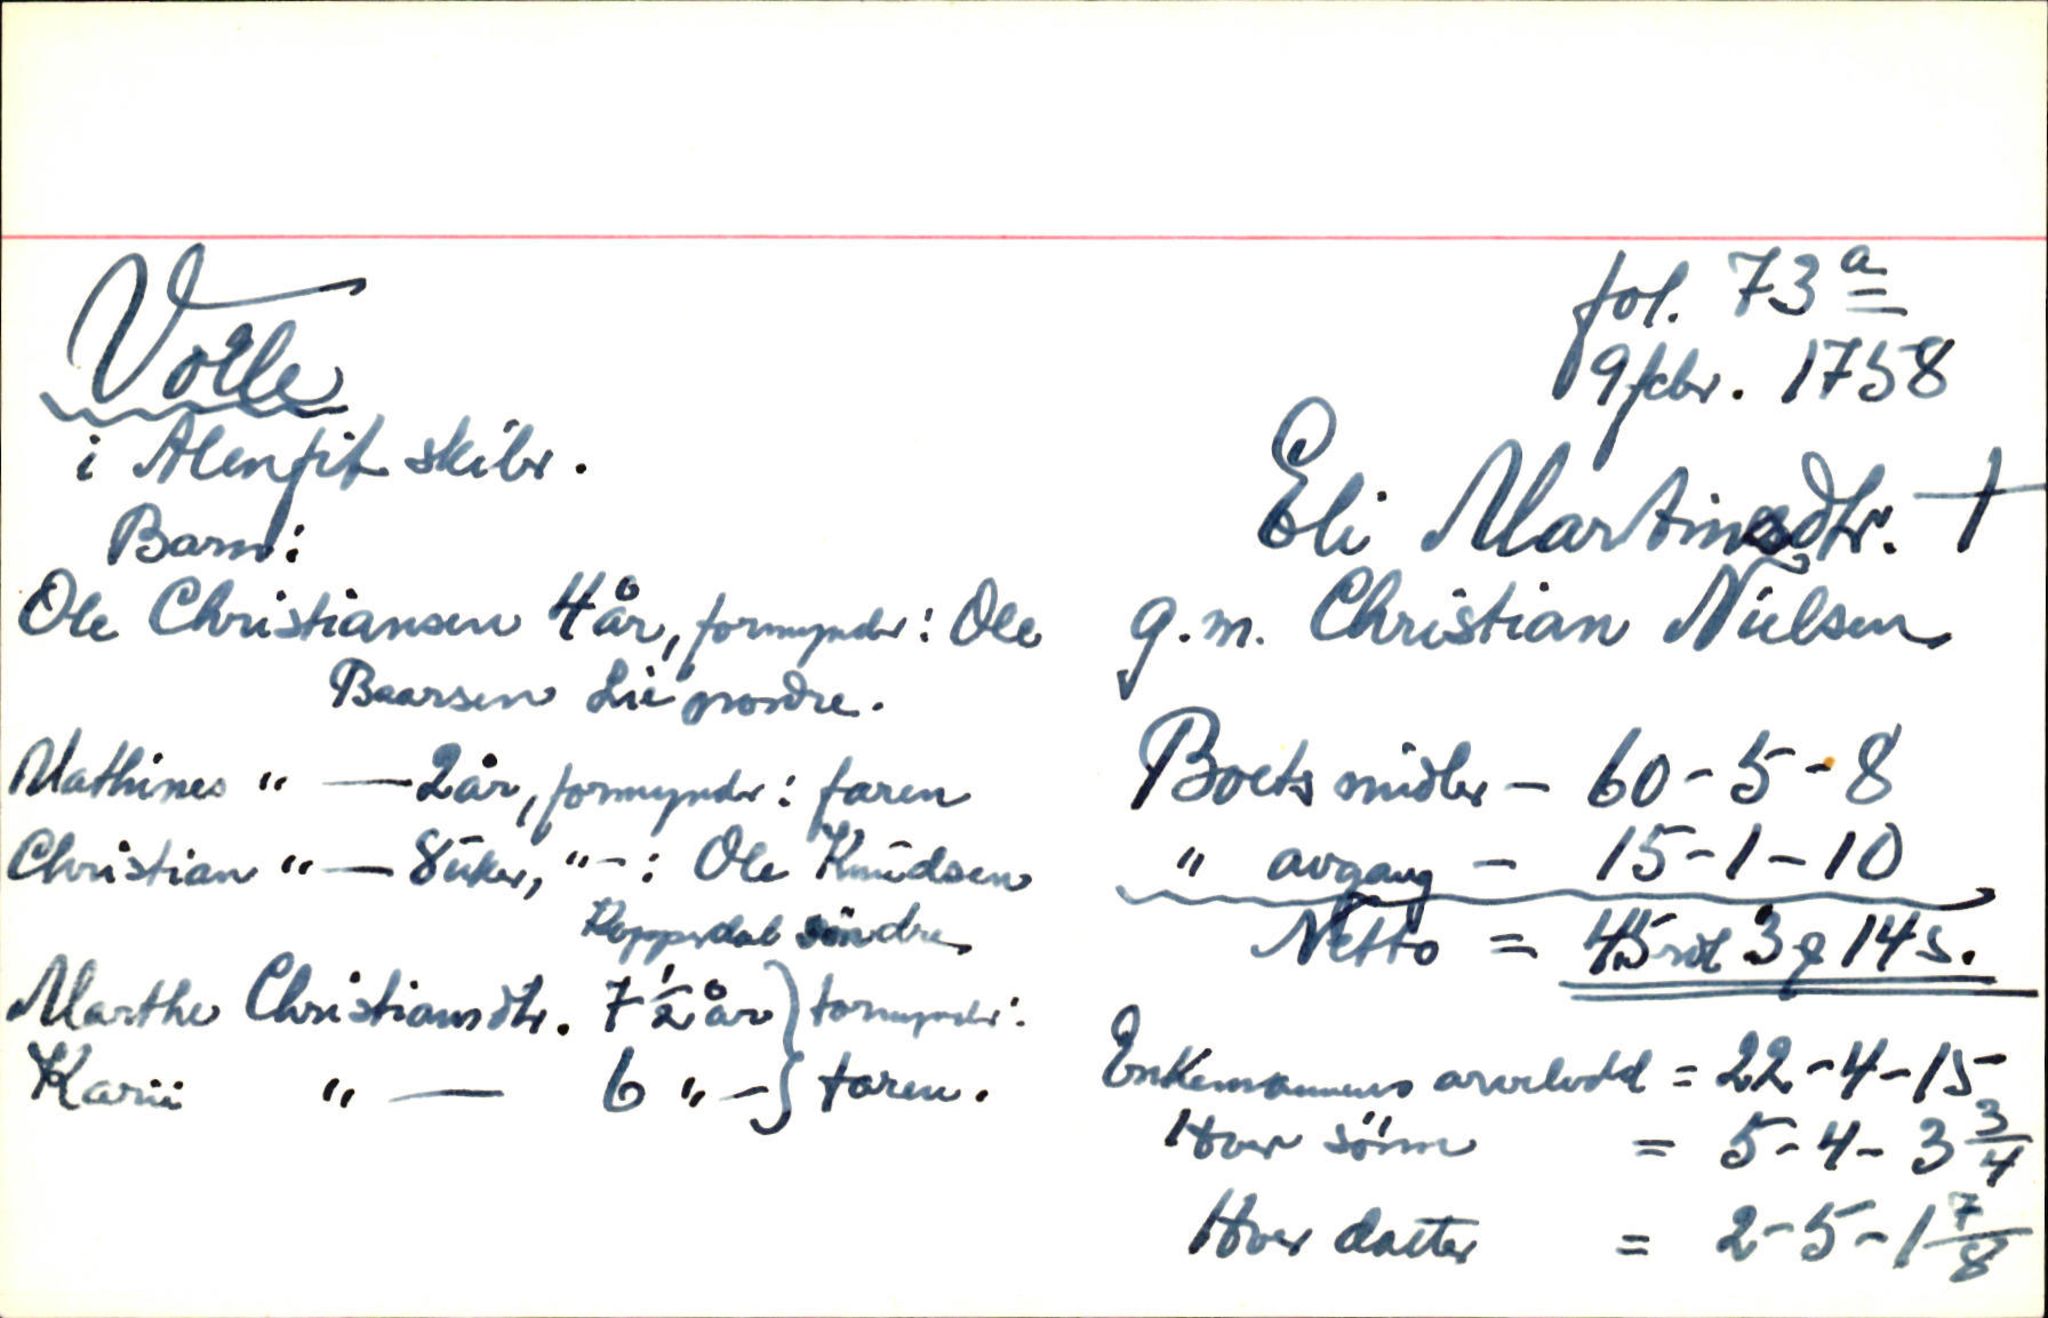 Volle
i Alenfit skibr.
Barn:
Ole Christiansen 4 år, formyndr: Ole
Baarsen Lie nordre.
Mathines " — 2 år, formyndr: faren
Christian " — 8 uker, " - : Ole Knudsen
søndre
Marthe Christiansdtr. 7 1/2 år } formyndr:
Karii " — 6 " - } faren.
fol. 73 a
9 febr. 1758
Eli Martinsdtr. †
g.m. Christian Nielsen
Boets midler - 60 - 5 - 8
" avgang - 15 - 1 - 10
Netto = 45 rdl 3 q 14 s.
Enkemannens arvelodd = 22 - 4 - 15
Hver sønn = 5 - 4 - 3 3/4
Hver datter = 2 - 5 - 1 7/8